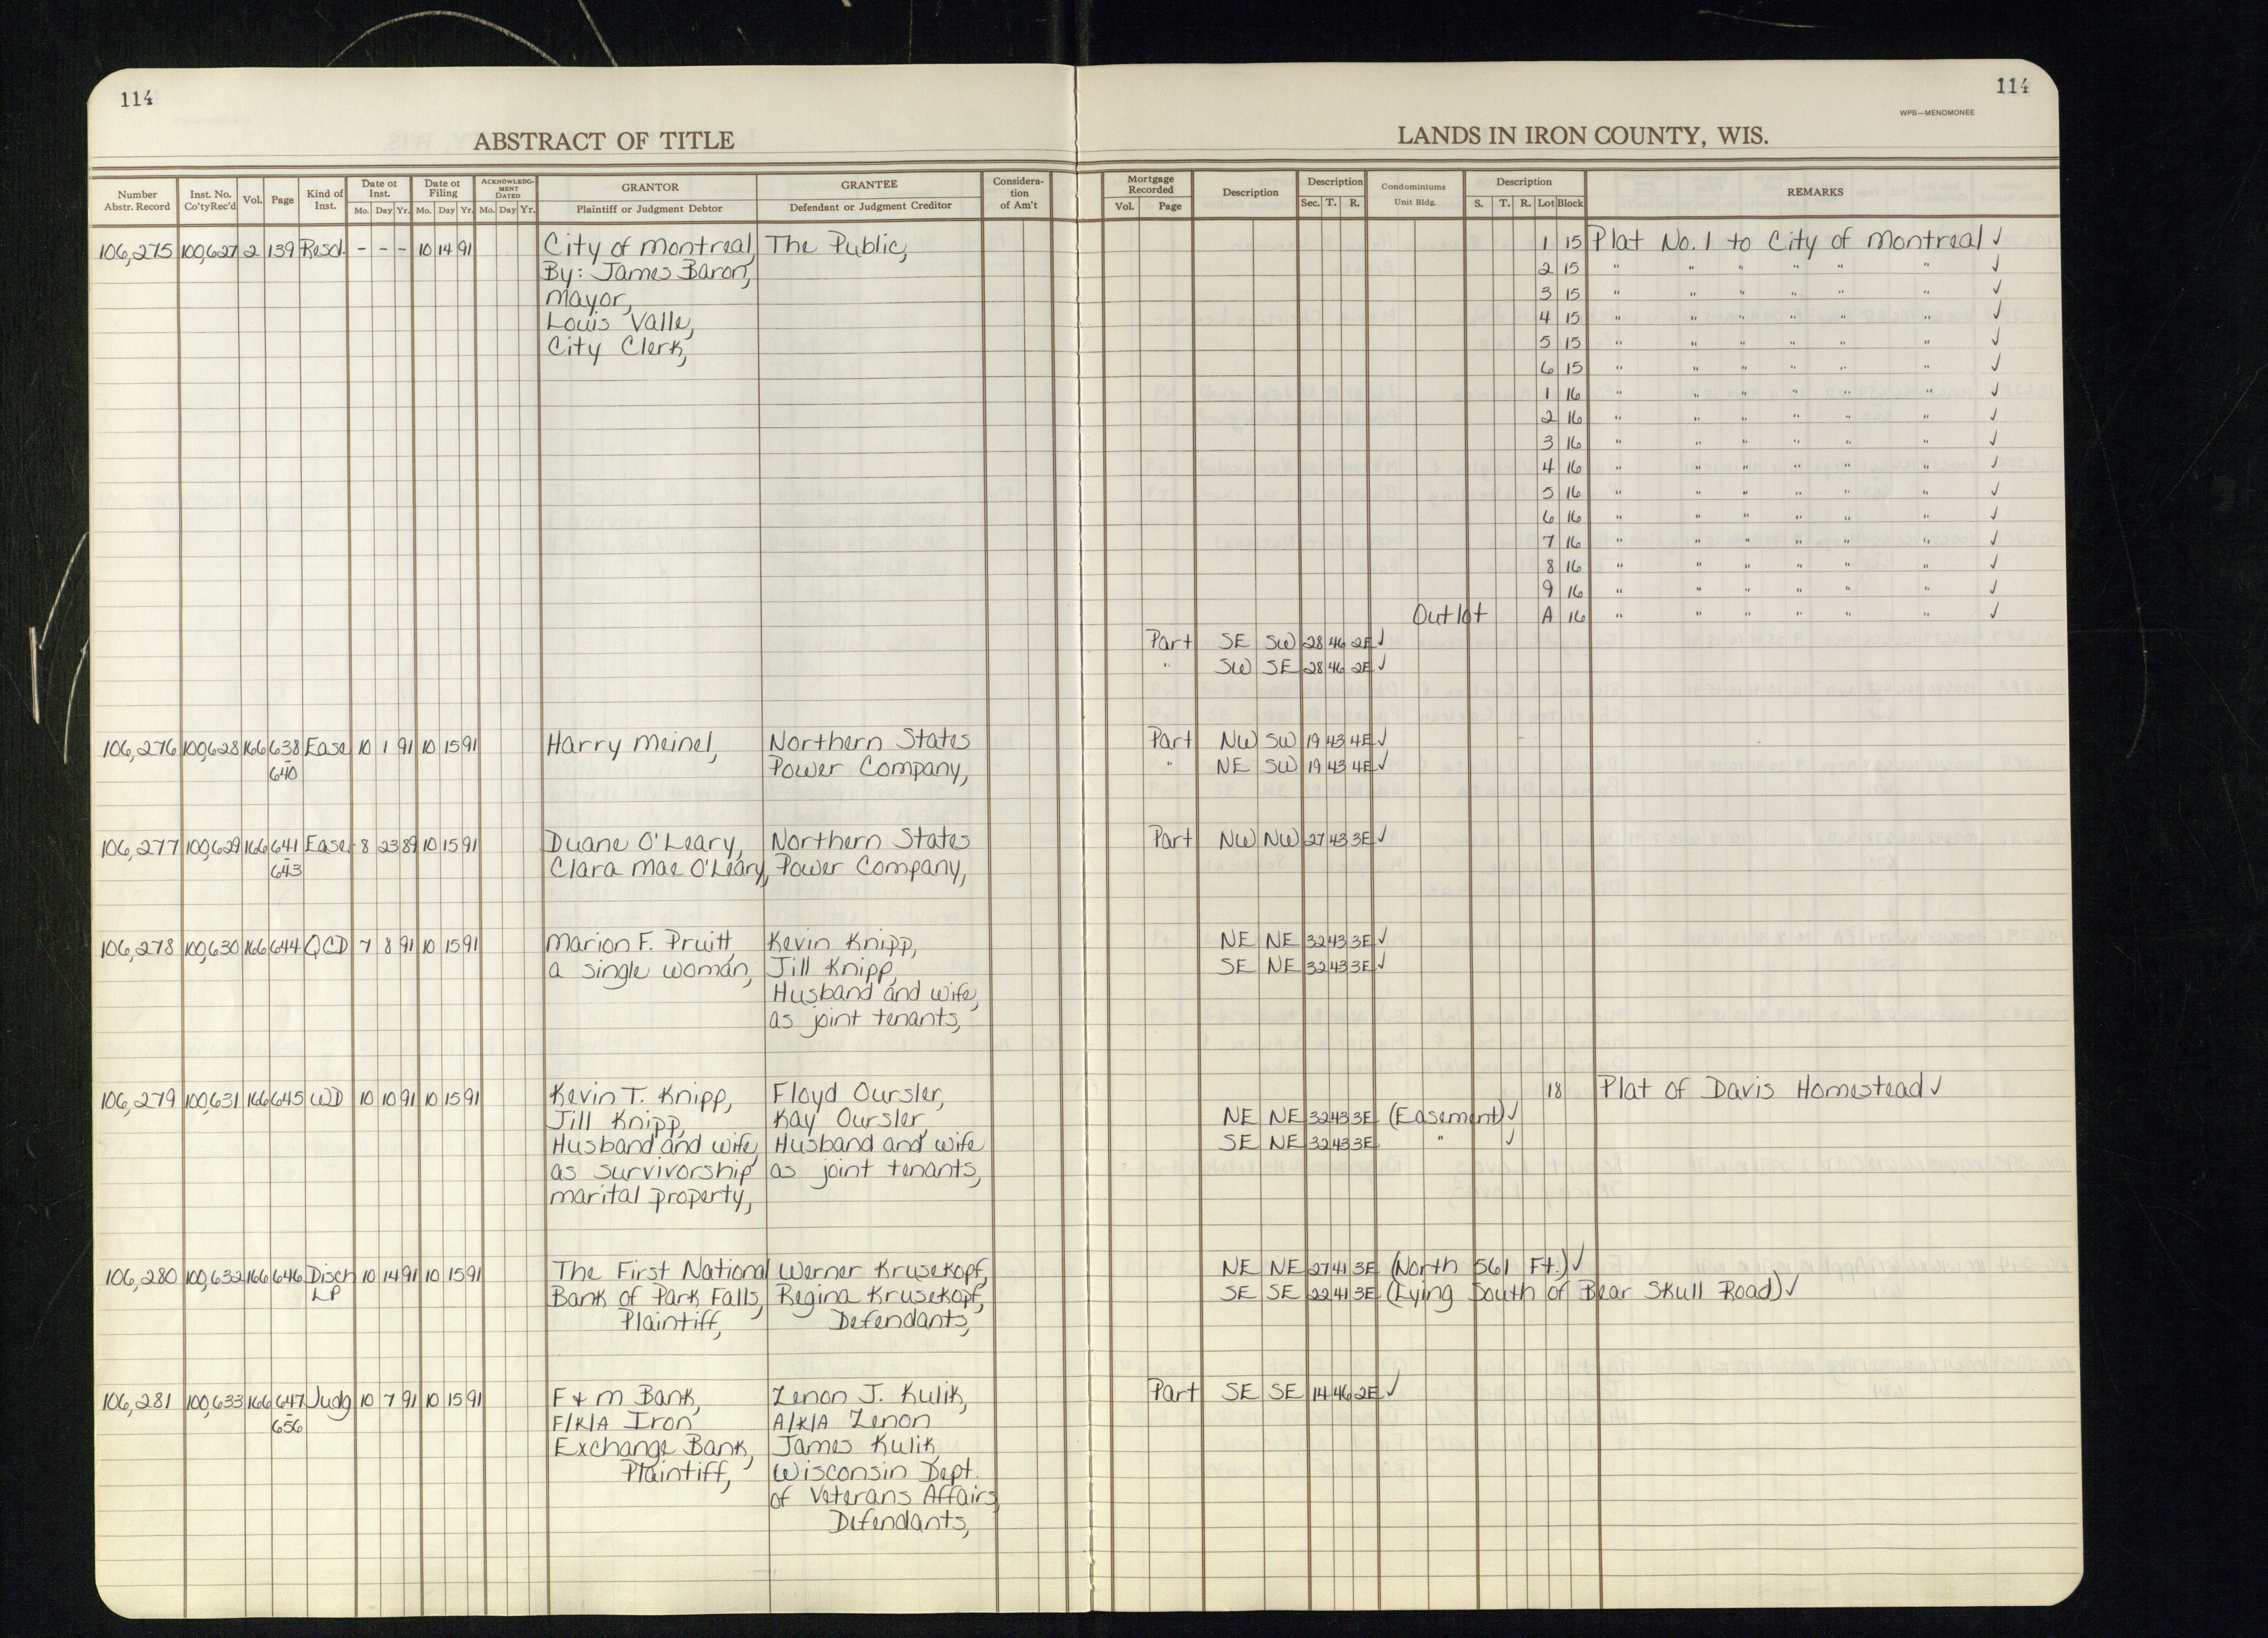 114
114
WPB—MENOMONEE
ABSTRACT OF TITLE
LANDS IN IRON COUNTY, WIS.
Number Abstr. Record | Inst. No. Co'ty Rec'd | Vol. | Page | Kind of Inst. | Date of Inst. Mo. Day Yr. | Date of Filing Mo. Day Yr. | ACKNOWLEDGMENT DATED Mo. Day Yr. | GRANTOR Plaintiff or Judgment Debtor | GRANTEE Defendant or Judgment Creditor | Consideration of Am't | Mortgage Recorded Vol. Page | Description | Description Sec. T. R. | Condominiums Unit Bldg. | Description S. T. R. Lot Block | REMARKS
106,275 100,627 2 139 Resol. - - - 10 14 91 City of Montreal, The Public, 1 15 Plat No. 1 to City of Montreal ✓
By: James Baron, 2 15 " " " " " " ✓
Mayor, 3 15 " " " " " " ✓
Louis Valle, 4 15 " " " " " " ✓
City Clerk, 5 15 " " " " " " ✓
6 15 " " " " " " ✓
1 16 " " " " " " ✓
2 16 " " " " " " ✓
3 16 " " " " " " ✓
4 16 " " " " " " ✓
5 16 " " " " " " ✓
6 16 " " " " " " ✓
7 16 " " " " " " ✓
8 16 " " " " " " ✓
9 16 " " " " " " ✓
Outlot A 16 " " " " " " ✓
Part SE SW 28 46 2E ✓
" SW SE 28 46 2E ✓
106,276 100,628 166 638 Ease 10 1 91 10 15 91 Harry Meinel, Northern States Part NW SW 19 43 4E ✓
- 640 Power Company, " NE SW 19 43 4E ✓
106,277 100,629 166 641 Ease 8 23 89 10 15 91 Duane O'Leary, Northern States Part NW NW 27 43 3E ✓
- 643 Clara Mae O'Leary, Power Company,
106,278 100,630 166 644 QCD 7 8 91 10 15 91 Marion F. Pruitt, Kevin Knipp, NE NE 32 43 3E ✓
a single woman, Jill Knipp, SE NE 32 43 3E ✓
Husband and wife,
as joint tenants,
106,279 100,631 166 645 WD 10 10 91 10 15 91 Kevin T. Knipp, Floyd Oursler, 18 Plat of Davis Homestead ✓
Jill Knipp, Kay Oursler, NE NE 32 43 3E (Easement) ✓
Husband and wife, Husband and wife SE NE 32 43 3E " ✓
as survivorship as joint tenants,
marital property,
106,280 100,632 166 646 Disch 10 14 91 10 15 91 The First National Werner Krusekopf, NE NE 27 41 3E (North 561 Ft.) ✓
LP Bank of Park Falls, Regina Krusekopf, SE SE 22 41 3E (Lying South of Bear Skull Road) ✓
Plaintiff, Defendants,
106,281 100,633 166 647 Judg 10 7 91 10 15 91 F & M Bank, Zenon J. Kulik, Part SE SE 14 46 2E ✓
- 656 F/K/A Iron A/K/A Zenon
Exchange Bank, James Kulik,
Plaintiff, Wisconsin Dept.
of Veterans Affairs,
Defendants,